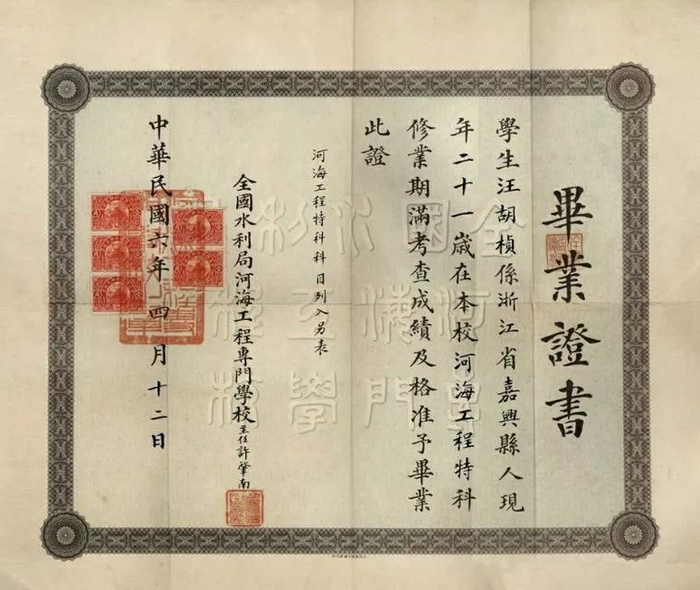 畢業證書
學生汪胡楨係浙江省嘉興縣人現
年二十一歲在本校河海工程特科
修業期滿考查成績及格准予畢業
此證
河海工程特科科目列入另表
全國水利局河海工程專門學校主任許肇南
中華民國六年四月十二日
全國水利
河海工程
專門學校